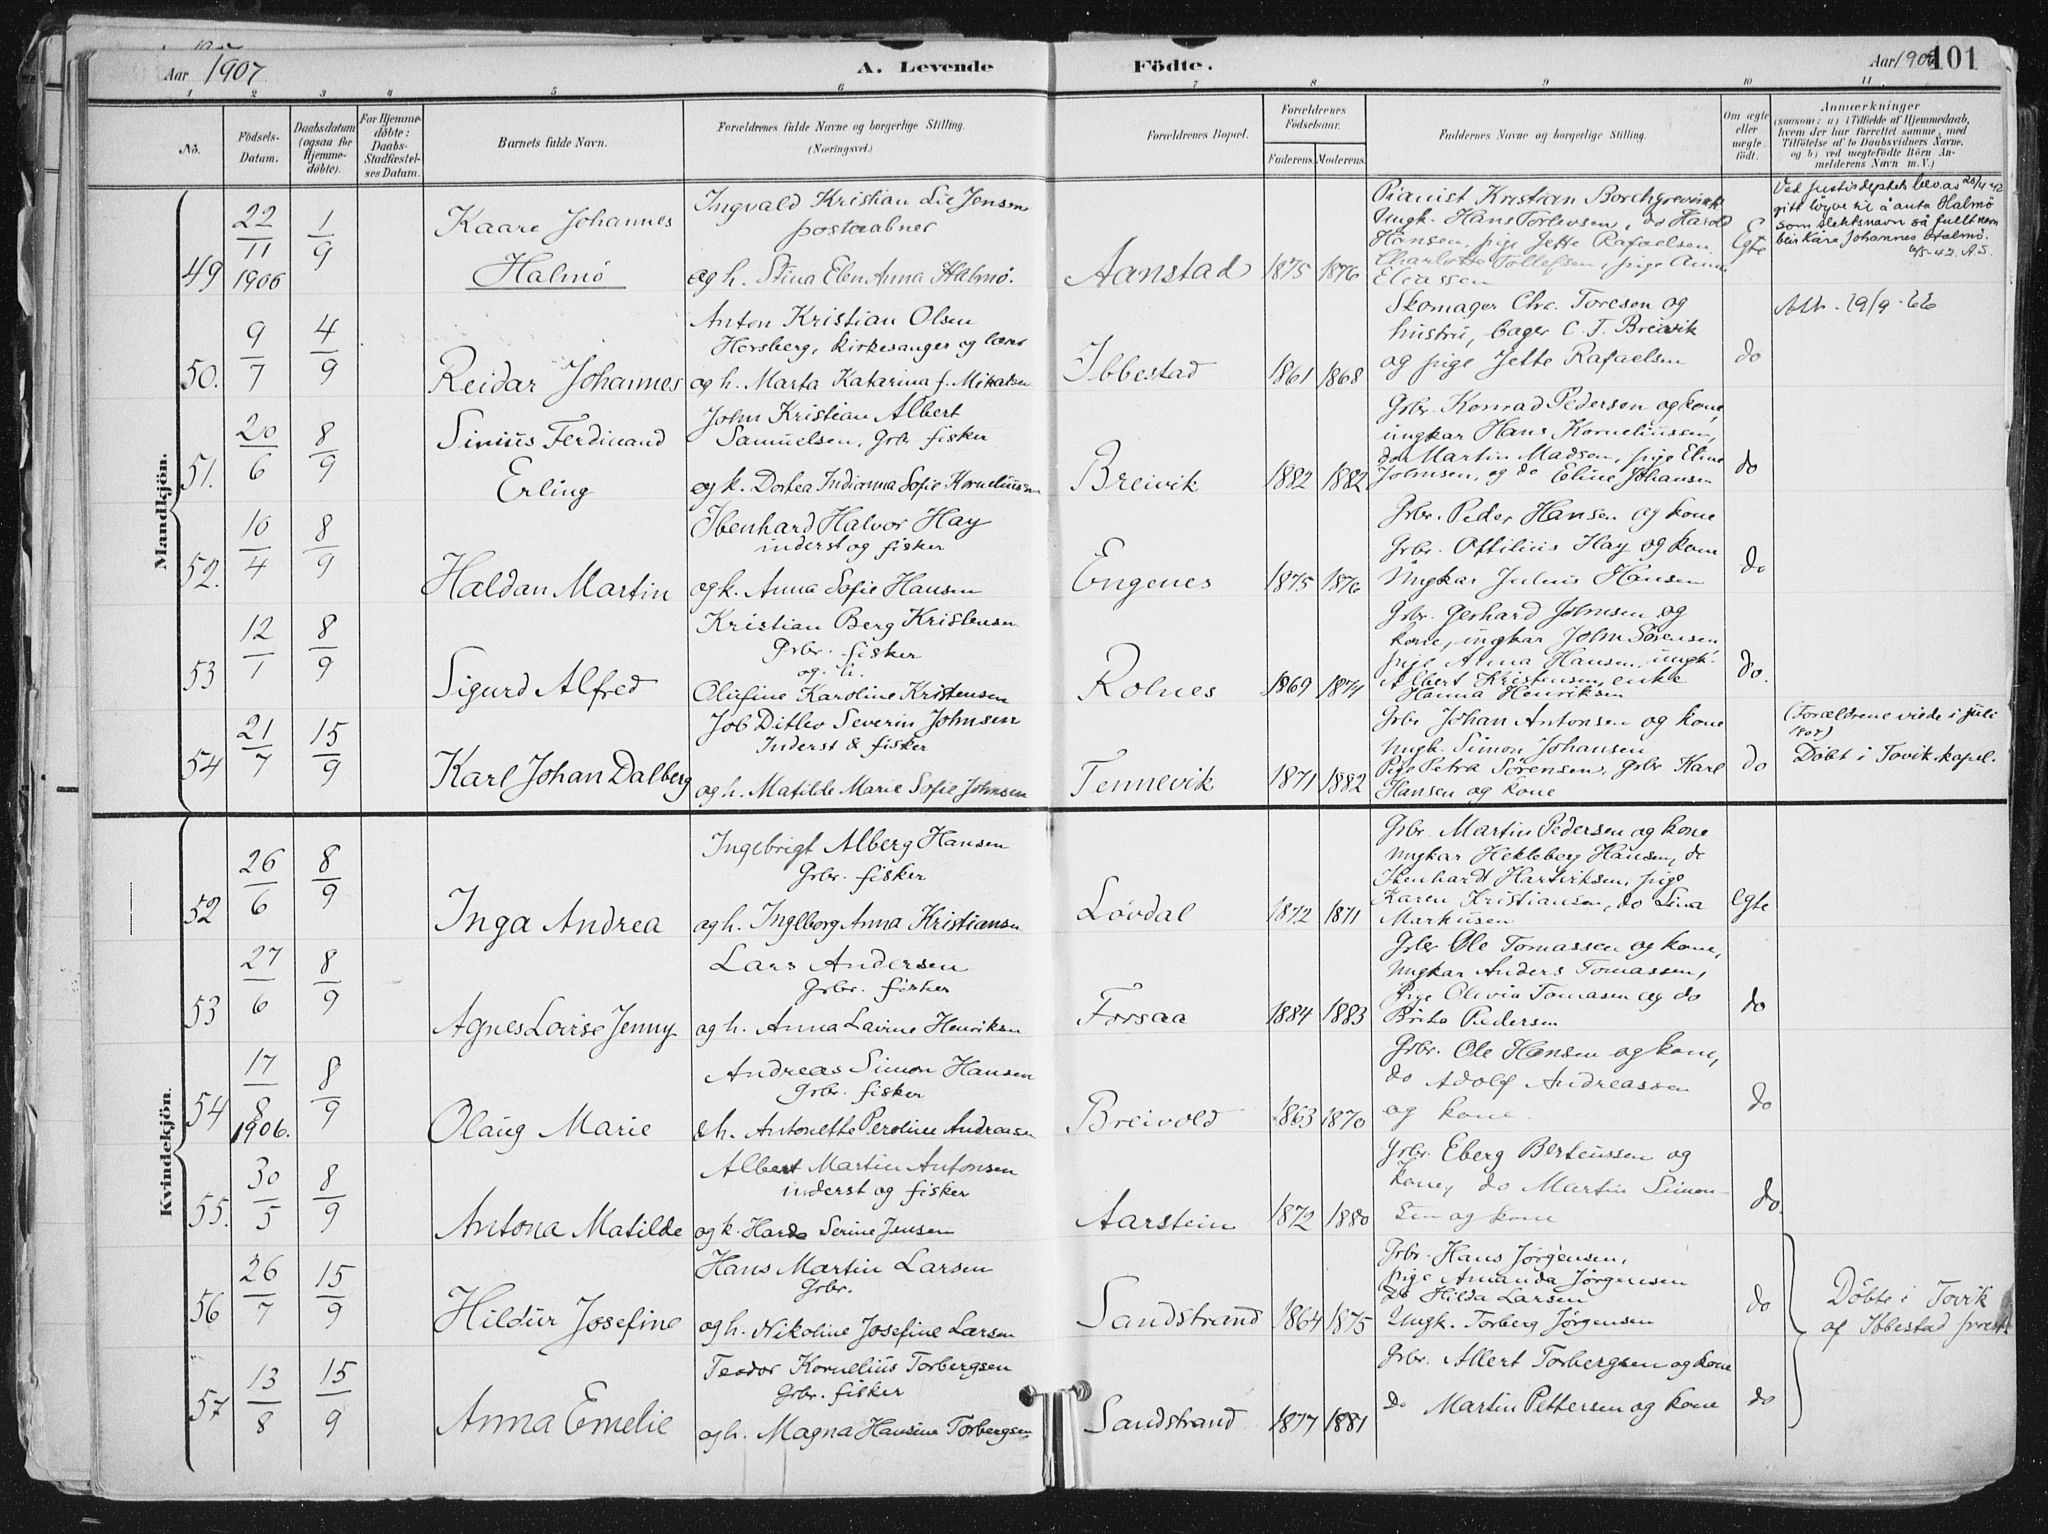 Aar 1907
A. Levende
Födte.
Aar 190
101
1 2 3 4 5 6 7 8 9 10 11
No.
Födsels-
Datum.
Daabsdatum
(ogsaa for
Hjemme-
döbte).
For Hjemme-
döbte:
Daabs-
Stadfæstel-
ses Datum.
Barnets fulde Navn.
Forældrenes fulde Navne og borgerlige Stilling.
(Næringsvei.)
Forældrenes Bopæl.
Forældrenes
Fødselsaar.
Faderens. Moderens.
Faddernes Navne og borgerlige Stilling.
Om ægte
eller
uægte
födt.
Anmærkninger
(saasom: a) i Tilfælde af Hjemmedaab,
hvem der har forrettet samme, med
Tilföielse af to Daabsvidners Navne,
og b) ved uægtefödte Börn An-
melderens Navn m. V.)
Mandkjön.
49
22/11
1906
1/9
Kaare Johannes
Halmö
Ingvald Kristian Lie Jensen
postaabner
og h. Stina Elen Anna Halmö.
Aanstad
1875 1876
Pianist Kristian Borchgrevink
Ungk. Hans Torlevsen, do Harald
Hansen, pige Jette Rafaelsen
Charlotte Tollefsen, pige
Eliassen
Egte
Ved justisdeptets bev. av 28/4 42
gitt løyve til å anta Halmö
som slektsnavn så fullt navn
blir Kåre Johannes Halmö.
6/5-42. A.S.
50.
9/7
4/9
Reidar Johannes
Anton Kristian Olsen
Horsberg, kirkesanger og lærer
og h. Marta Katarina f. Mikalsen
Ibbestad
1861 1868
Skomager Chr. Toresen og
hustru, bager C. T. Breivik
og pige Jette Rafaelsen
do
Att. 19/9-66
51.
20/6
8/9
Sinius Ferdinand
Erling
John Kristian Albert
Samuelsen, Grbr fisker
og k. Dortea Indianna Sofie Korneliussen
Breivik
1882 1882
Grbr. Konrad Pedersen og kone,
ungkar Hans Korneliussen,
do Martin Madsen, pige Eline
Johnsen, og do Eline Johansen
do
52.
10/4
8/9
Haldan Martin
Ibenhard Halvor Hay
inderst og fisker
og k. Anna Sofie Hansen
Engenes
1875 1876
Grbr. Peder Hansen og kone
Grbr. Oftilius Hay og kone
Ungkar Julius Hansen
do
53
12/1
8/9
Sigurd Alfred
Kristian Berg Kristensen
Grbr. fisker
og h.
Olufine Karoline Kristensen
Rolnes
1869 1874
Grbr. Gerhard Johnsen og
kone, ungkar John Sörensen
pige Anna Hansen, ungk.
Albert Kristensen, enke
Hanna Henriksen
do.
54
21/7
15/9
Karl Johan Dalberg
Job Ditlev Severin Johnsen
Inderst & fisker
og h. Matilde Marie Sofie Johnsen
Tennevik
1871 1882
Grbr Johan Antonsen og kone
Ungk. Simon Johansen
Pige Petra Sörensen, grbr Karl
Hansen og kone
do
(Forældrene viede i juli
1907)
Döbt i Tovik kapel.
Kvindekjön.
52
26/6
8/9
Inga Andrea
Ingebrigt Alberg Hansen
Grbr. fisker
og h. Ingeborg Anna Kristiansen
Lövdal
1872 1871
Grbr. Martin Pedersen og kone
Ungkar Hekleberg Hansen, do
Ibenhardt Hartviksen, pige
Karen Kristiansen, do Lina
Markusen
Egte
53
27/6
8/9
Agnes Lovise Jenny
Lars Andersen
Grbr. fisker
og h. Anna Lavine Henriksen
Forsaa
1884 1883
Grbr Ole Tomassen og kone,
Ungkar Anders Tomassen,
Pige Olivia Tomasen og do
Brita Pedersen
do
54
17/8
1906.
8/9
Olaug Marie
Andreas Simon Hansen
Grbr. fisker
& h. Antonette Peroline Andreasen
Breivold
1863 1870
Grbr. Ole Hansen og kone,
do Adolf Andreassen
og kone.
do
55.
30/5
8/9
Antona Matilde
Albert Martin Antonsen
inderst og fisker
og k. Harda Serine Jensen
Aarstein
1872 1880
Grbr Eberg Berteussen og
Kone, do Martin Simon-
sen og kone
do.
56
26/7
15/9
Hildur Josefine
Hans Martin Larsen
Grbr.
og h. Nikoline Josefine Larsen
Sandstrand
1864 1875
Grbr. Hans Jörgensen,
pige Amanda Jörgensen
do Hilda Larsen
Ungk. Torberg Jörgensen
do
Döbte i Tovik
af Ibbestad prest.
57
13/8
15/9
Anna Emelie
Teodor Kornelius Torbergsen
Grbr. fisker
og h. Magna Hansine Torbergsen
Sandstrand
1877 1881
Grbr. Allert Torbergsen og kone
do Martin Pettersen og kone
do